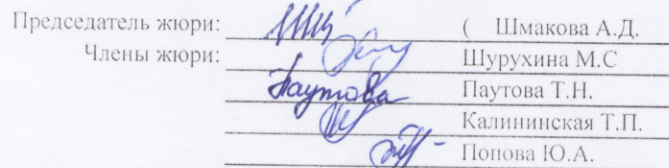 Председатель жюри: ( Шмакова А.Д.
Члены жюри: Шурухина М.С
Паутова Паутова Т.Н.
Калининская Т.П.
Попова Ю.А.